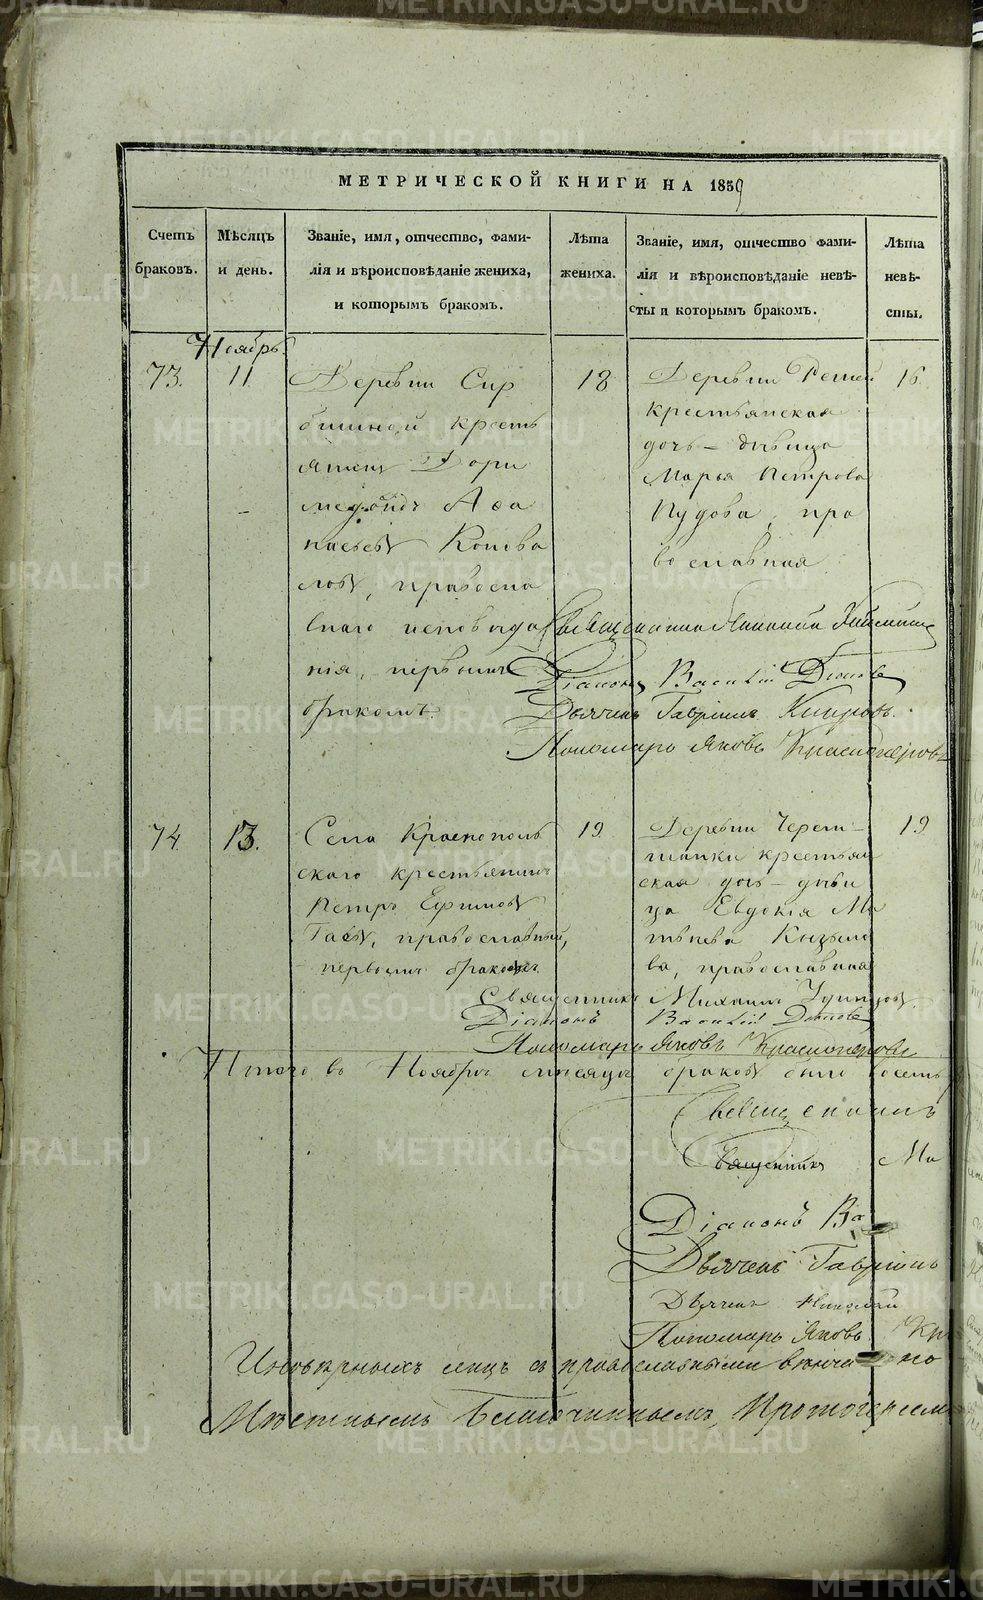 МЕТРИЧЕСКОЙ КНИГИ НА 1859
Счетъ браковъ.
Мѣсяцъ и день.
Званіе, имя, отчество, фами-
лія и вѣроисповѣданіе жениха,
и которымъ бракомъ.
Лѣта жениха.
Званіе, имя, отчество фами-
лія и вѣроисповѣданіе невѣ-
сты и которымъ бракомъ.
Лѣта невѣ-
сты.
Ноябрь
73.
11
Деревни Сир
бишной кресть
янинъ Дори
медонтъ Афа
насьевъ Конова
ловъ, правосла
внаго исповѣда
нія, первымъ
бракомъ.
18
Деревни
крестьянская
дочь – дѣвица
Марья Петрова
Пудова, пра
вославная
16
Священникъ
Діаконъ Василій
Дьячекъ Гавріилъ
Пономарь Яковъ Красноперовъ
74
13.
Села Краснополь
скаго крестьянинъ
Петръ Ефимовъ
православный,
первымъ бракомъ
19
Деревни Черем-
шанки крестьян
ская дочь – дѣви
ца Евдокія Ма
твѣева
ва, православная
19
Священникъ Михаилъ
Діаконъ Василій
Пономарь Яковъ Красноперовъ
Итого въ Ноябрѣ мѣсяцѣ браковъ было восемь
Священникъ
Священникъ Ми
Діаконъ Ва
Дьячекъ Гавріилъ
Дьячекъ Николай
Пономарь Яковъ Кр
Иновѣрныхъ лицъ съ православными
Мѣстнымъ Благочиннымъ, Протоіереем
METRIKI.GASO-URAL.RU